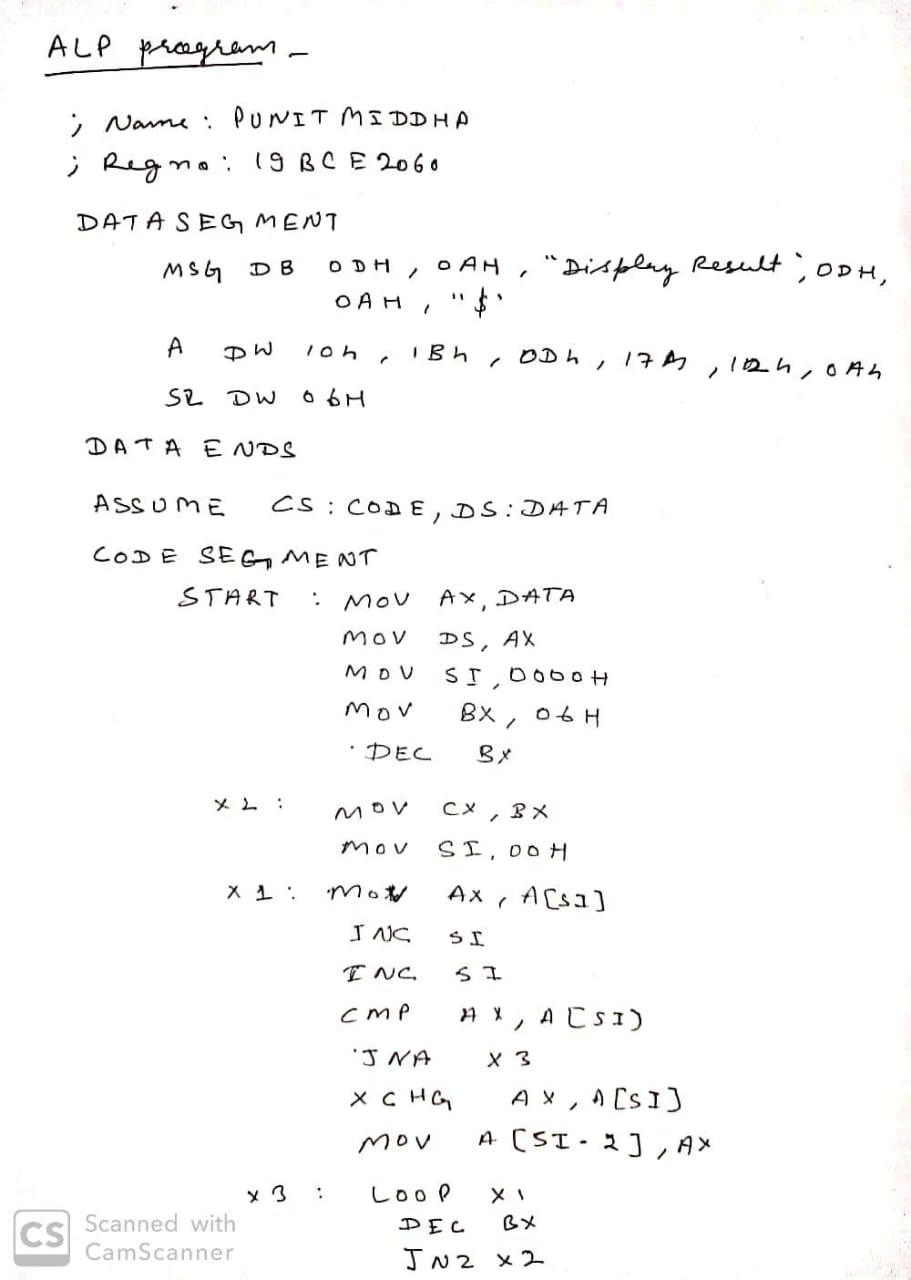 ALP program -
; Name : PUNIT MIDDHA
; Reg no : 19 BCE 2060
DATA SEGMENT
MSG DB 0DH , 0AH , "Display Result", 0DH,
0AH , "$"
A DW 10h , 1Bh , 0Dh , 17h , 12h , 0Ah
SR DW 06H
DATA ENDS
ASSUME CS : CODE, DS : DATA
CODE SEGMENT
START : MOV AX, DATA
MOV DS, AX
MOV SI, 0000H
MOV BX, 06H
DEC BX
X2 : MOV CX, BX
MOV SI, 00H
X1 : MOV AX, A[SI]
INC SI
INC SI
CMP AX, A[SI]
JNA X3
XCHG AX, A[SI]
MOV A[SI-2], AX
X3 : LOOP X1
DEC BX
JNZ X2
CS Scanned with
CamScanner